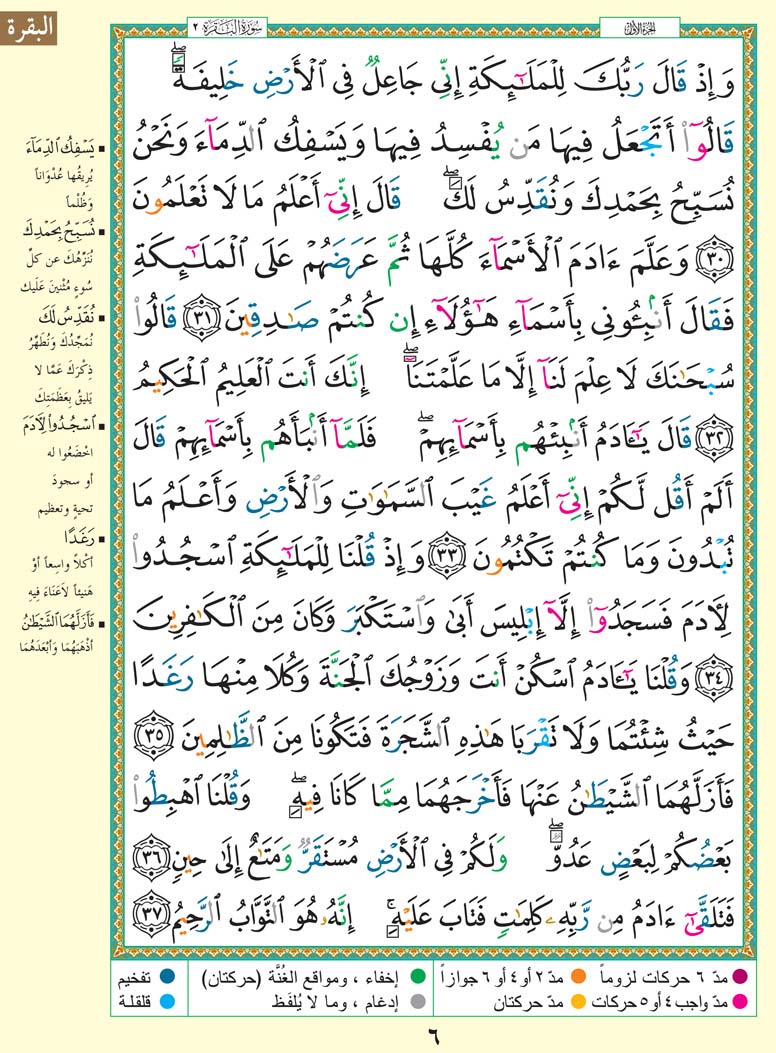 البقرة
الجزء الأول
سورة البقرة ٢
وَإِذْ قَالَ رَبُّكَ لِلْمَلَـٰٓئِكَةِ إِنِّي جَاعِلٌ فِي ٱلْأَرْضِ خَلِيفَةً ۖ
قَالُوٓا۟ أَتَجْعَلُ فِيهَا مَن يُفْسِدُ فِيهَا وَيَسْفِكُ ٱلدِّمَآءَ وَنَحْنُ
نُسَبِّحُ بِحَمْدِكَ وَنُقَدِّسُ لَكَ ۖ قَالَ إِنِّيٓ أَعْلَمُ مَا لَا تَعْلَمُونَ
﴿٣٠﴾ وَعَلَّمَ ءَادَمَ ٱلْأَسْمَآءَ كُلَّهَا ثُمَّ عَرَضَهُمْ عَلَى ٱلْمَلَـٰٓئِكَةِ
فَقَالَ أَنۢبِـُٔونِي بِأَسْمَآءِ هَـٰٓؤُلَآءِ إِن كُنتُمْ صَـٰدِقِينَ ﴿٣١﴾ قَالُوا۟
سُبْحَـٰنَكَ لَا عِلْمَ لَنَآ إِلَّا مَا عَلَّمْتَنَآ ۖ إِنَّكَ أَنتَ ٱلْعَلِيمُ ٱلْحَكِيمُ
﴿٣٢﴾ قَالَ يَـٰٓـَٔادَمُ أَنۢبِئْهُم بِأَسْمَآئِهِمْ ۖ فَلَمَّآ أَنۢبَأَهُم بِأَسْمَآئِهِمْ قَالَ
أَلَمْ أَقُل لَّكُمْ إِنِّيٓ أَعْلَمُ غَيْبَ ٱلسَّمَـٰوَٰتِ وَٱلْأَرْضِ وَأَعْلَمُ مَا
تُبْدُونَ وَمَا كُنتُمْ تَكْتُمُونَ ﴿٣٣﴾ وَإِذْ قُلْنَا لِلْمَلَـٰٓئِكَةِ ٱسْجُدُوا۟
لِـَٔادَمَ فَسَجَدُوٓا۟ إِلَّآ إِبْلِيسَ أَبَىٰ وَٱسْتَكْبَرَ وَكَانَ مِنَ ٱلْكَـٰفِرِينَ
﴿٣٤﴾ وَقُلْنَا يَـٰٓـَٔادَمُ ٱسْكُنْ أَنتَ وَزَوْجُكَ ٱلْجَنَّةَ وَكُلَا مِنْهَا رَغَدًا
حَيْثُ شِئْتُمَا وَلَا تَقْرَبَا هَـٰذِهِ ٱلشَّجَرَةَ فَتَكُونَا مِنَ ٱلظَّـٰلِمِينَ ﴿٣٥﴾
فَأَزَلَّهُمَا ٱلشَّيْطَـٰنُ عَنْهَا فَأَخْرَجَهُمَا مِمَّا كَانَا فِيهِ ۖ وَقُلْنَا ٱهْبِطُوا۟
بَعْضُكُمْ لِبَعْضٍ عَدُوٌّ ۖ وَلَكُمْ فِي ٱلْأَرْضِ مُسْتَقَرٌّ وَمَتَـٰعٌ إِلَىٰ حِينٍ ﴿٣٦﴾
فَتَلَقَّىٰٓ ءَادَمُ مِن رَّبِّهِۦ كَلِمَـٰتٍ فَتَابَ عَلَيْهِ ۚ إِنَّهُۥ هُوَ ٱلتَّوَّابُ ٱلرَّحِيمُ ﴿٣٧﴾
▪ يَسْفِكُ ٱلدِّمَآءَ
يُرِيقُها عُدْوَاناً
وَظُلْماً
▪ نُسَبِّحُ بِحَمْدِكَ
نُنَزِّهُكَ عن كلِّ
سُوءٍ مُثْنينَ عَلَيك
▪ نُقَدِّسُ لَكَ
نُمَجِّدُكَ وَنُطَهِّرُ
ذِكْرَكَ عَمَّا لا
يَليقُ بِعَظَمَتِكَ
▪ ٱسْجُدُوا۟ لِـَٔادَمَ
اخْضَعُوا له
أو سجودَ
تحيةٍ وتعظيم
▪ رَغَدًا
أكْلاً واسِعاً أوْ
هَنيئاً لاَعَنَاءَ فِيهِ
▪ فَأَزَلَّهُمَا ٱلشَّيْطَـٰنُ
أذْهَبَهُمَا وَأبْعَدَهُمَا
مدّ ٦ حركات لزوماً
مدّ ٢ أو ٤ أو ٦ جوازاً
إخفاء ، ومواقع الغُنَّة (حركتان)
تفخيم
مدّ واجب ٤ أو ٥ حركات
مدّ حركتان
إدغام ، وما لا يُلفَظ
قلقلة
٦